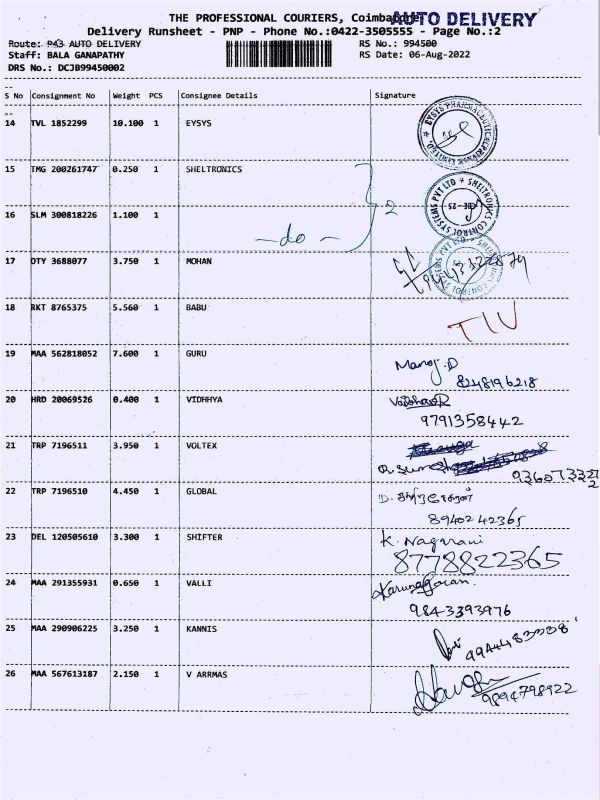 THE PROFESSIONAL COURIERS, Coimbatore
AUTO DELIVERY
Delivery Runsheet - PNP - Phone No.:0422-3505555 - Page No.:2
Route: P43 AUTO DELIVERY
RS No.: 994500
Staff: BALA GANAPATHY
RS Date: 06-Aug-2022
DRS No.: DCJB99450002
S No Consignment No Weight PCS Consignee Details Signature
14 TVL 1852299 10.100 1 EYSYS
15 TMG 200261747 0.250 1 SHELTRONICS
2
16 SLM 300818226 1.100 1
-do-
17 OTY 3688077 3.750 1 MOHAN
18 RKT 8765375 5.560 1 BABU
19 MAA 562818052 7.600 1 GURU
Manoj.D
8248196218
20 HRD 20069526 0.400 1 VIDHHYA
9791358442
21 TRP 7196511 3.950 1 VOLTEX
22 TRP 7196510 4.450 1 GLOBAL
8940242365
23 DEL 120505610 3.300 1 SHIFTER
K. Nagarani
8778822365
24 MAA 291355931 0.650 1 VALLI
9843393976
25 MAA 290906225 3.250 1 KANNIS
26 MAA 567613187 2.150 1 V ARRMAS
9894798922